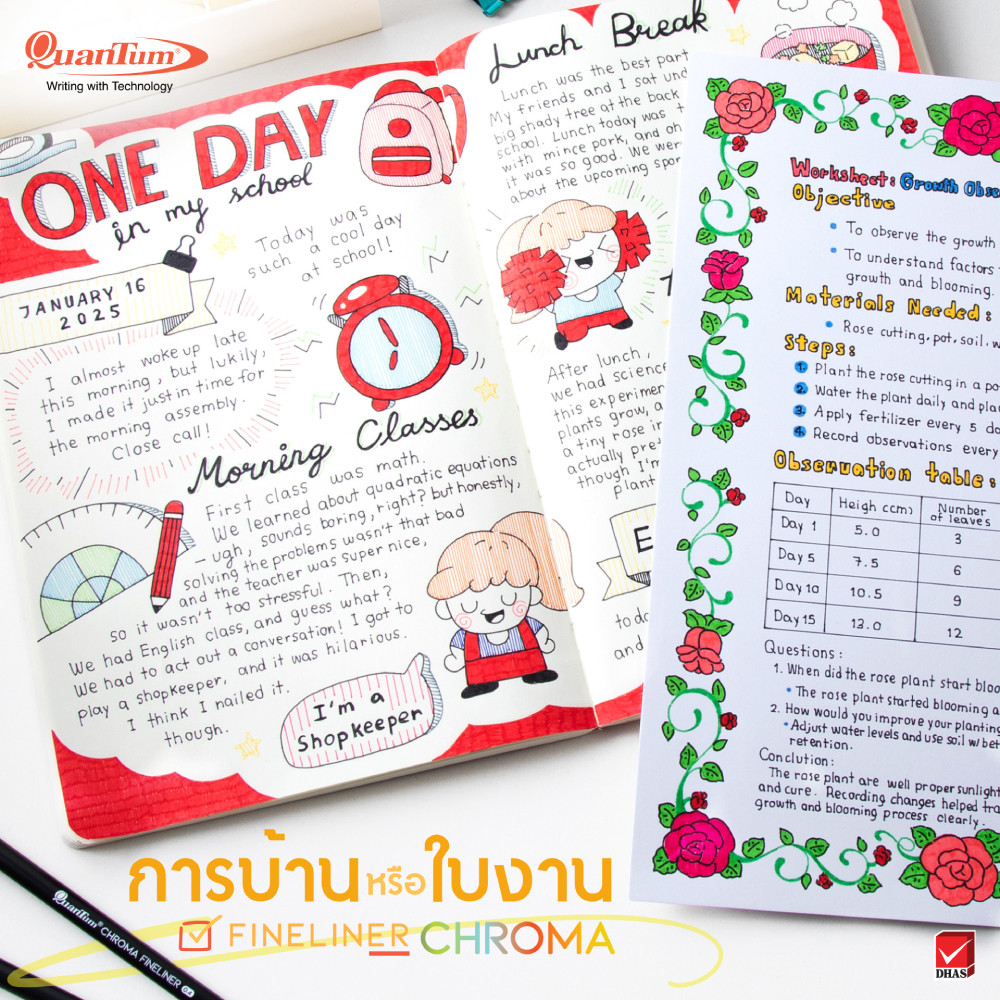 QuanTum®
Writing with Technology
ONE DAY
in my school
Today was
such a cool day
at school!!
JANUARY 16
2025
I almost woke up late
this morning, but lukily,
I made it just in time for
the morning assembly.
Close call!
Morning Classes
First class was math.
We learned about quadratic equations
- ugh, sounds boring, right? but honestly,
solving the problems wasn't that bad
and the teacher was super nice,
so it wasn't too stressful. Then,
We had English class, and guess what?
We had to act out a conversation! I got to
play a shopkeeper, and it was hilarious.
I think I nailed it.
though.
I'm a
Shopkeeper
Lunch Break
Lunch was the best part
My friends and I sat und
big shady tree at the back
school. Lunch today was
with mince pork, and oh
it was so good. We were
about the upcoming spor
After lunch,
we had science
this experimen
plants grow, a
a tiny rose in
actually pre
though I'm
plant
E
to do
and
Worksheet: Growth Obse
Objective
• To observe the growth
• To understand factors
growth and blooming.
Materials Needed:
• Rose cutting, pot, soil, w
Steps:
1. Plant the rose cutting in a po
2. Water the plant daily and pla
3. Apply fertilizer every 5 da
4. Record observations every
Observation table:
Day Heigh ccm) Number of leaves
Day 1 5.0 3
Day 5 7.5 6
Day 10 10.5 9
Day 15 13.0 12
Questions:
1. When did the rose plant start bloo
• The rose plant started blooming a
2. How would you improve your planting
• Adjust water levels and use soil w/ bet
retention.
Conclution:
The rose plant are well proper sunlight
and cure. Recording changes helped tra
growth and blooming process clearly.
การบ้านหรือใบงาน
FINELINER CHROMA
QuanTum® CHROMA FINELINER 0.4
DHAS